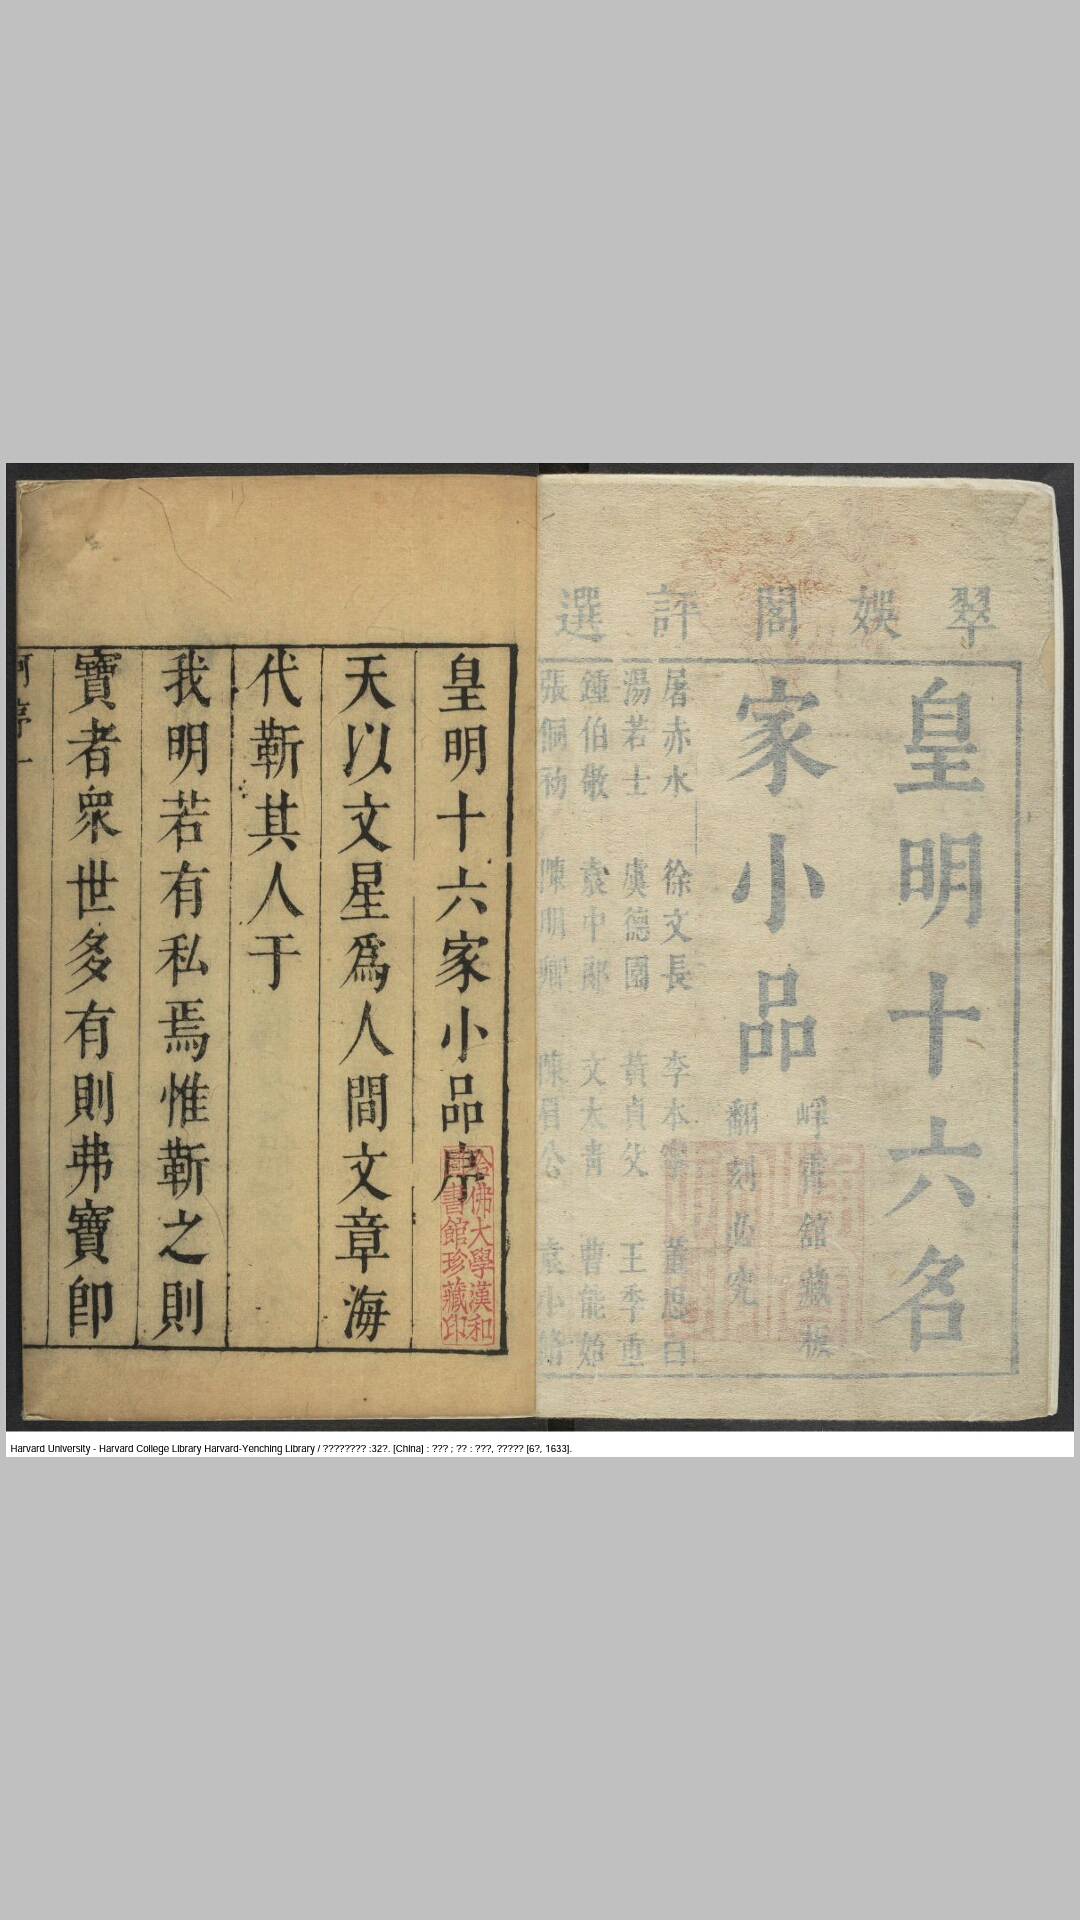 翠娛閣評選
皇明十六名
家小品
崢霄館藏板
翻刻必究
屠赤水 徐文長 李本寧 董思白
湯若士 虞德園 黃貞父 王季重
鍾伯敬 袁中郎 文太青 曹能始
張侗初 陳明卿 陳眉公 袁小修
皇明十六家小品序
哈佛大學漢和
圖書館珍藏印
天以文星爲人間文章海
代靳其人于
我明若有私焉惟靳之則
寶者衆世多有則弗寶卽
何序一
Harvard University - Harvard College Library Harvard-Yenching Library / ???????? :32?. [China] : ??? ; ?? : ???, ????? [6?, 1633].